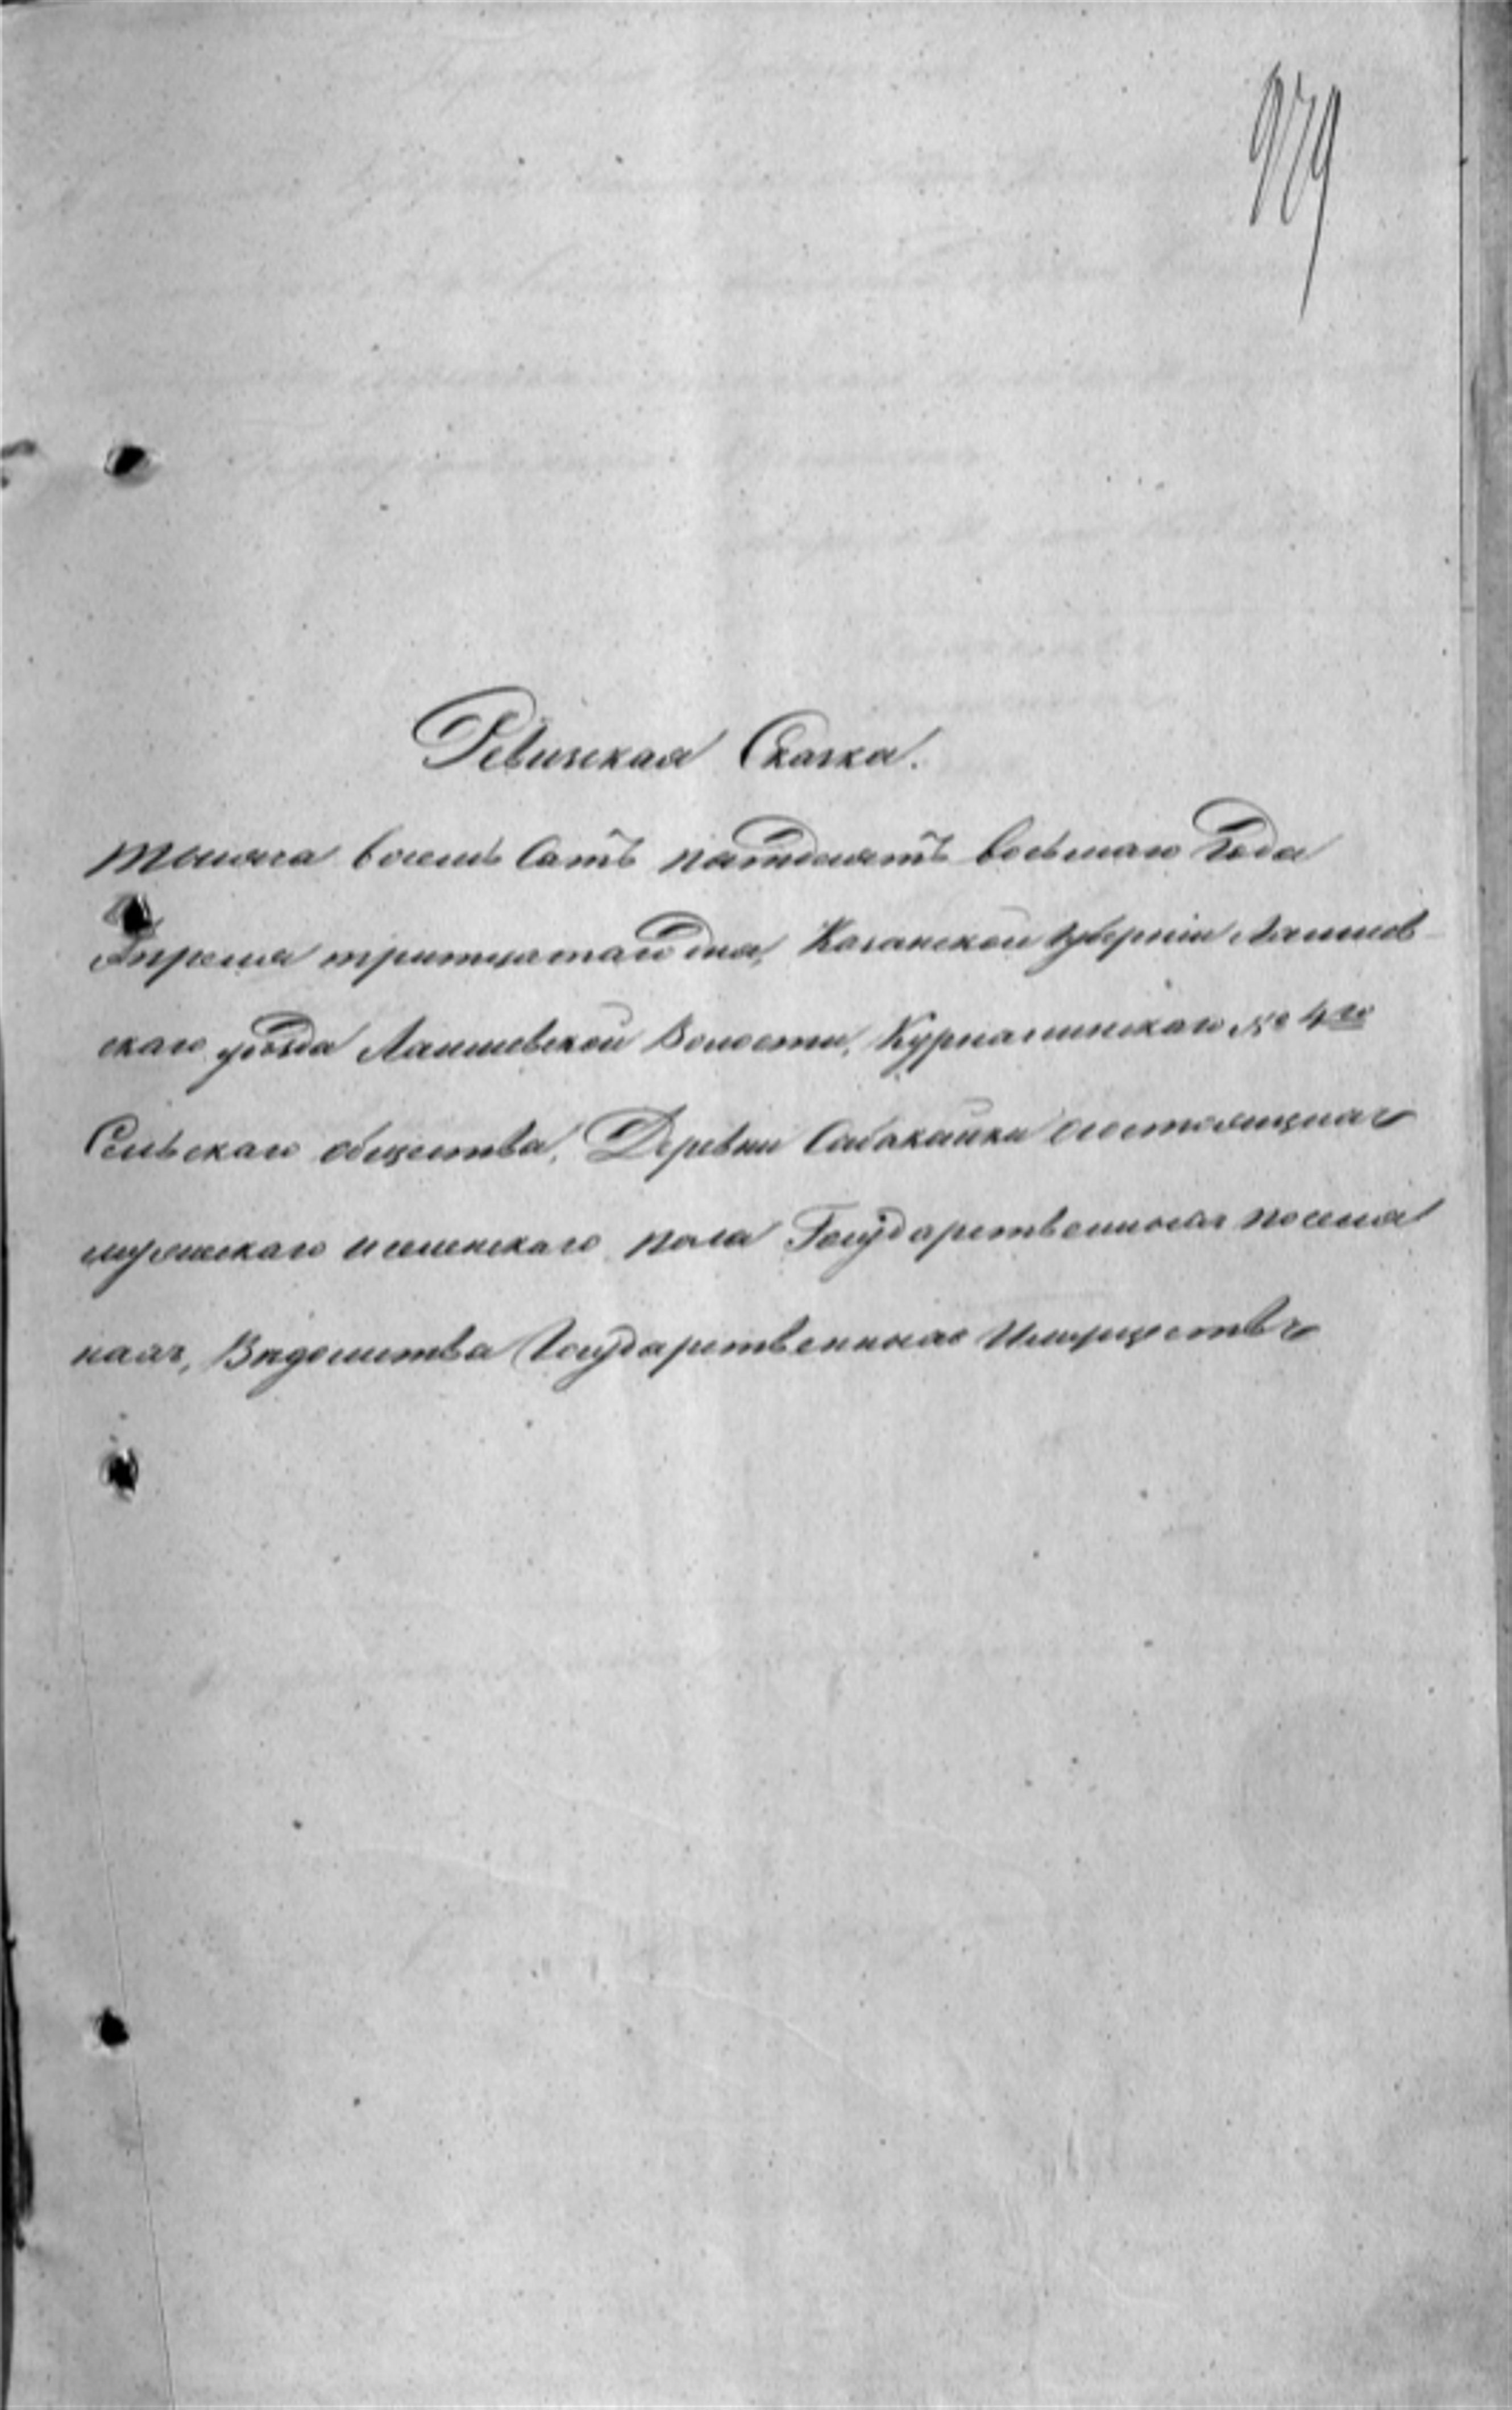 979
Ревизская Сказка.
тысяча восемь сотъ пятдесятъ восьмаго года
Апреля тритцатаго дня, Казанской губерніи Лаишев-
скаго уѣзда Лаишевской Волости, Курналинскаго № 4го
Сельскаго общества, Деревни Сабакайки состоящихъ
мужескаго и женскаго пола Государственныхъ поселя
нахъ, Вѣдомства Государственныхъ Имуществъ